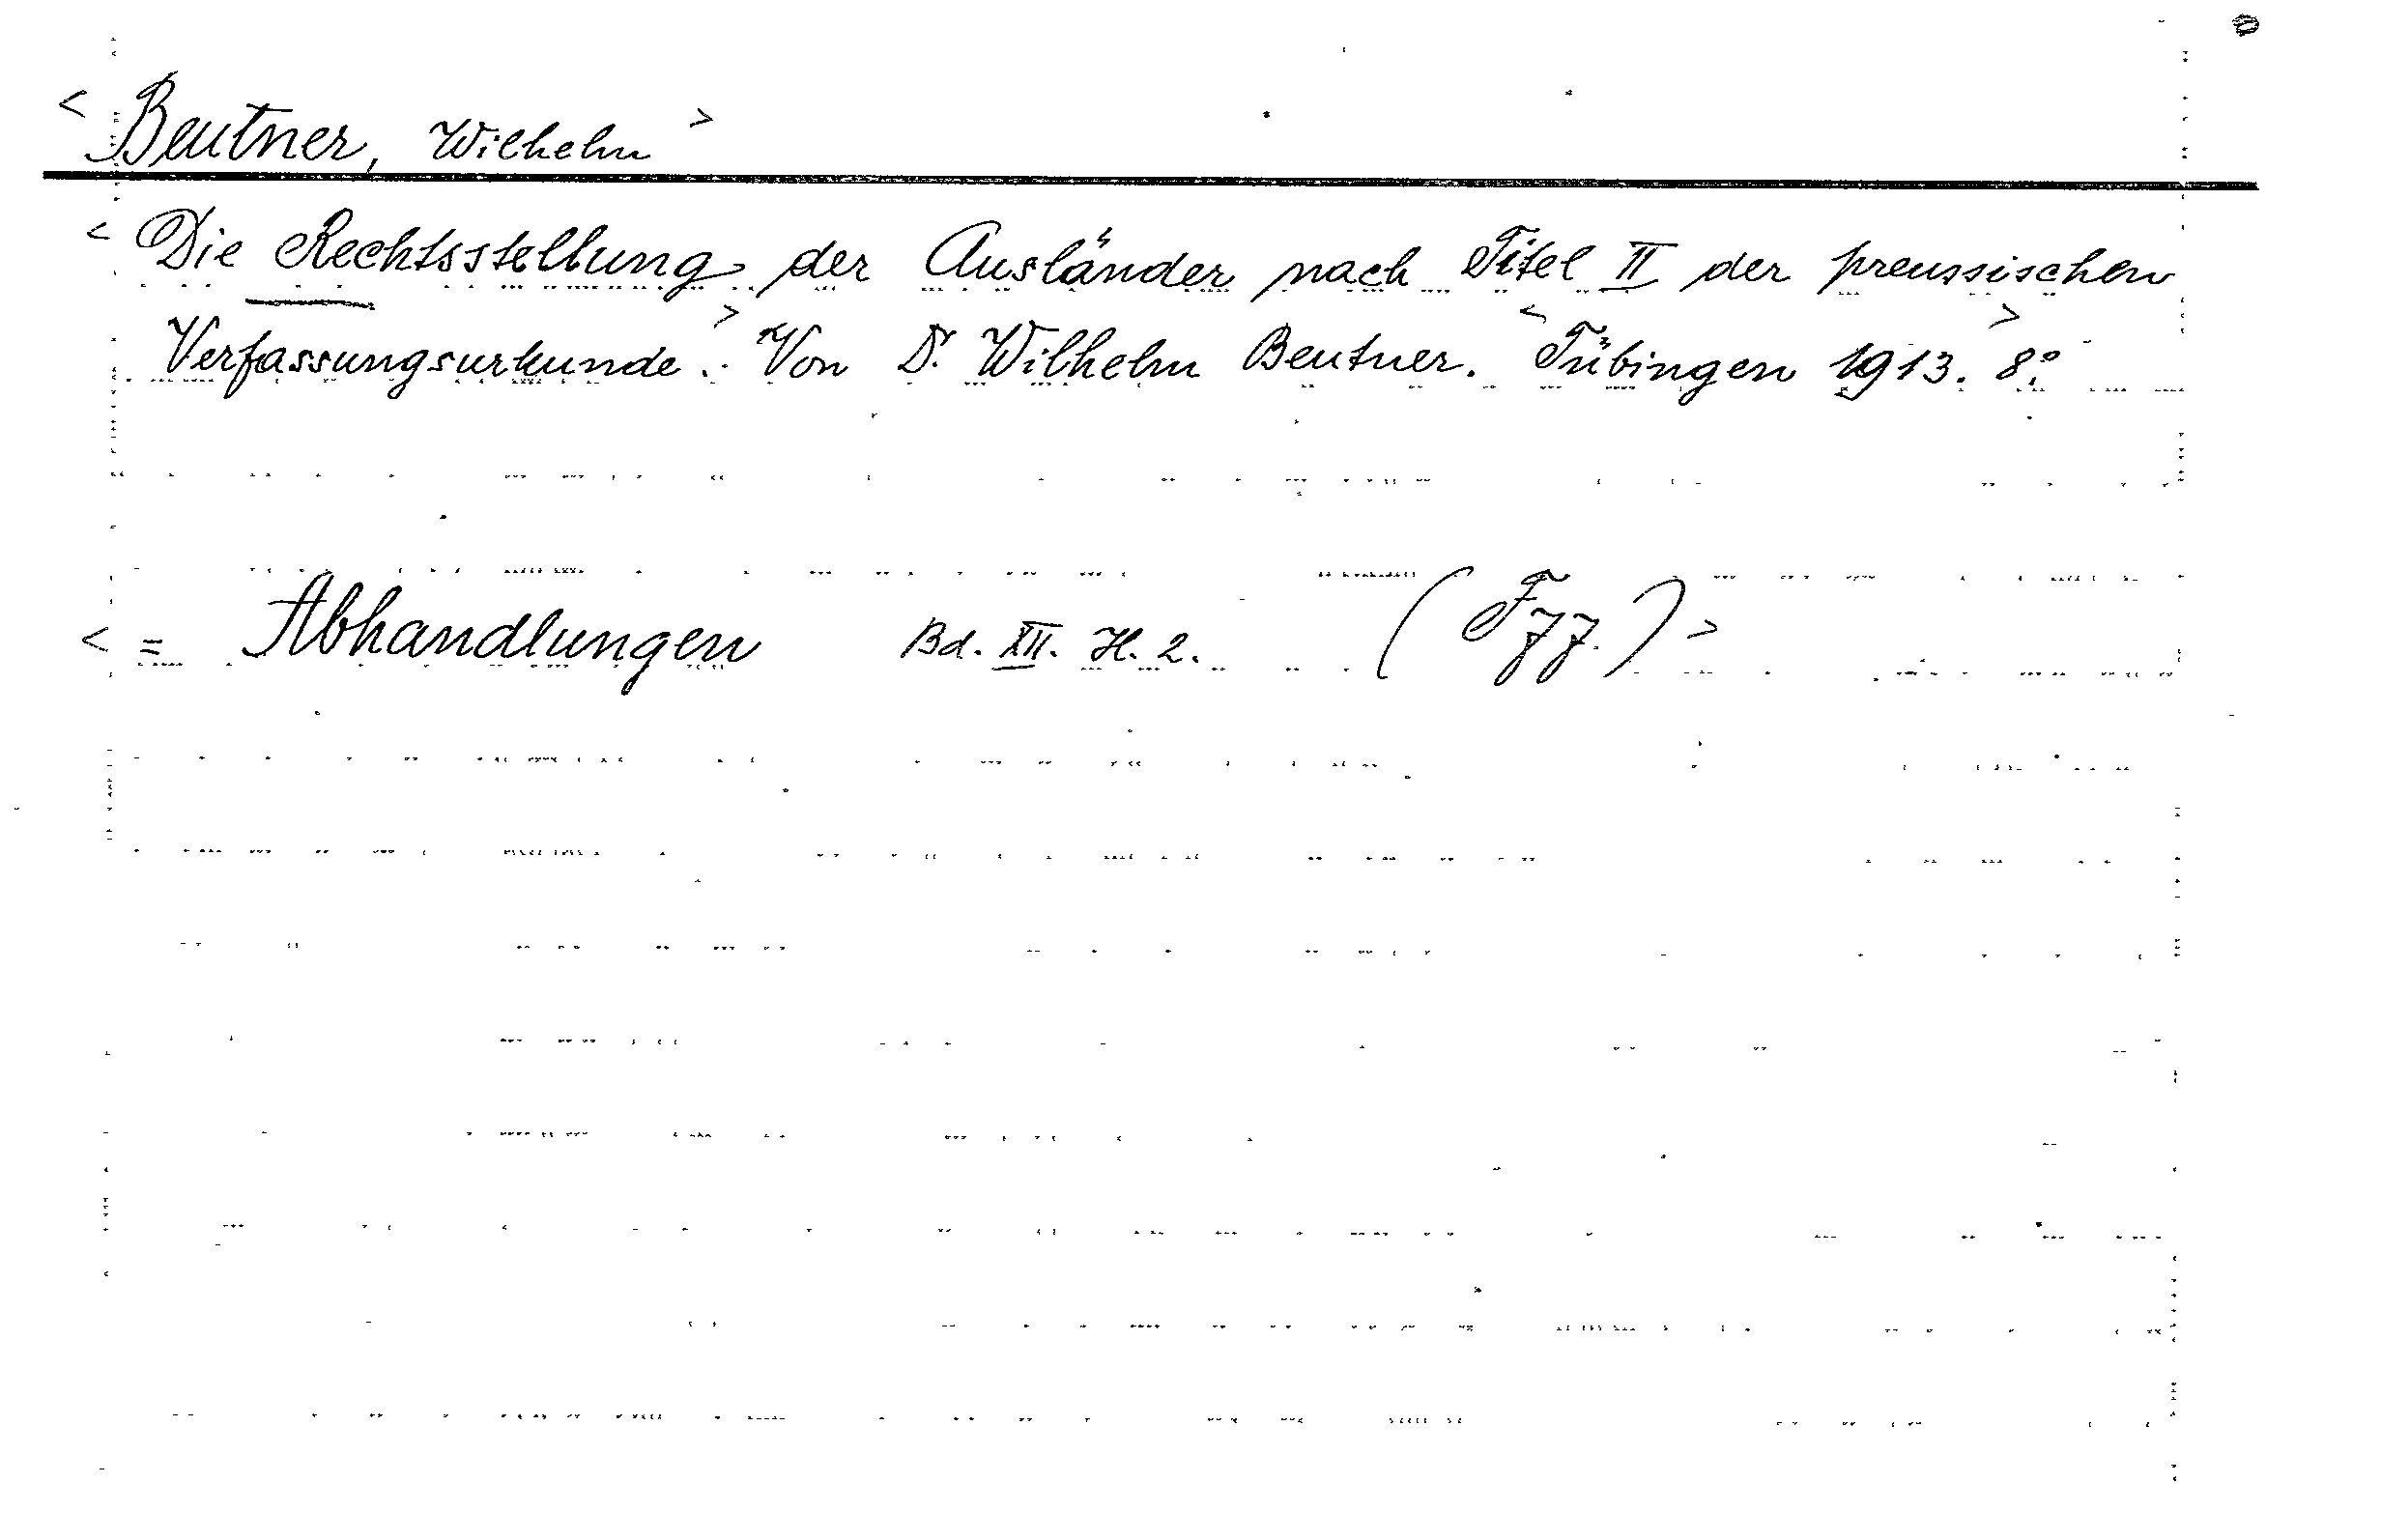 < Beutner, Wilhelm >
< Die Rechtsstellung der Ausländer nach Titel II der preussischen
Verfassungsurkunde. > Von Dr. Wilhelm Beutner. < Tübingen 1913. > 8.°
< = Abhandlungen Bd. XII. H. 2. (Fzz.) >